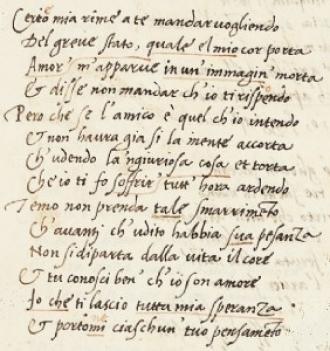 Certo mia rime a te mandar vogliendo
Del greve stato, quale el mio cor porta
Amor m'apparue in un'immagin' morta
Et disse non mandar ch'io ti risp̃endo
Pero che se l'amico è quel ch'io intendo
E non haura gia si la mente accorta
Ch'udendo la 'ngiuriosa cosa et torta
Che io ti fo soffrir' tutt' hora ardendo
Temo non prenda tale smarrimẽto
Ch'auanti ch'udito habbia sua pesanza
Non si diparta dalla vita il core
Et tu conosci ben' ch'io son amore
Io che ti lascio tutta mia speranza
Et portomi ciaschun' tuo pensamẽto